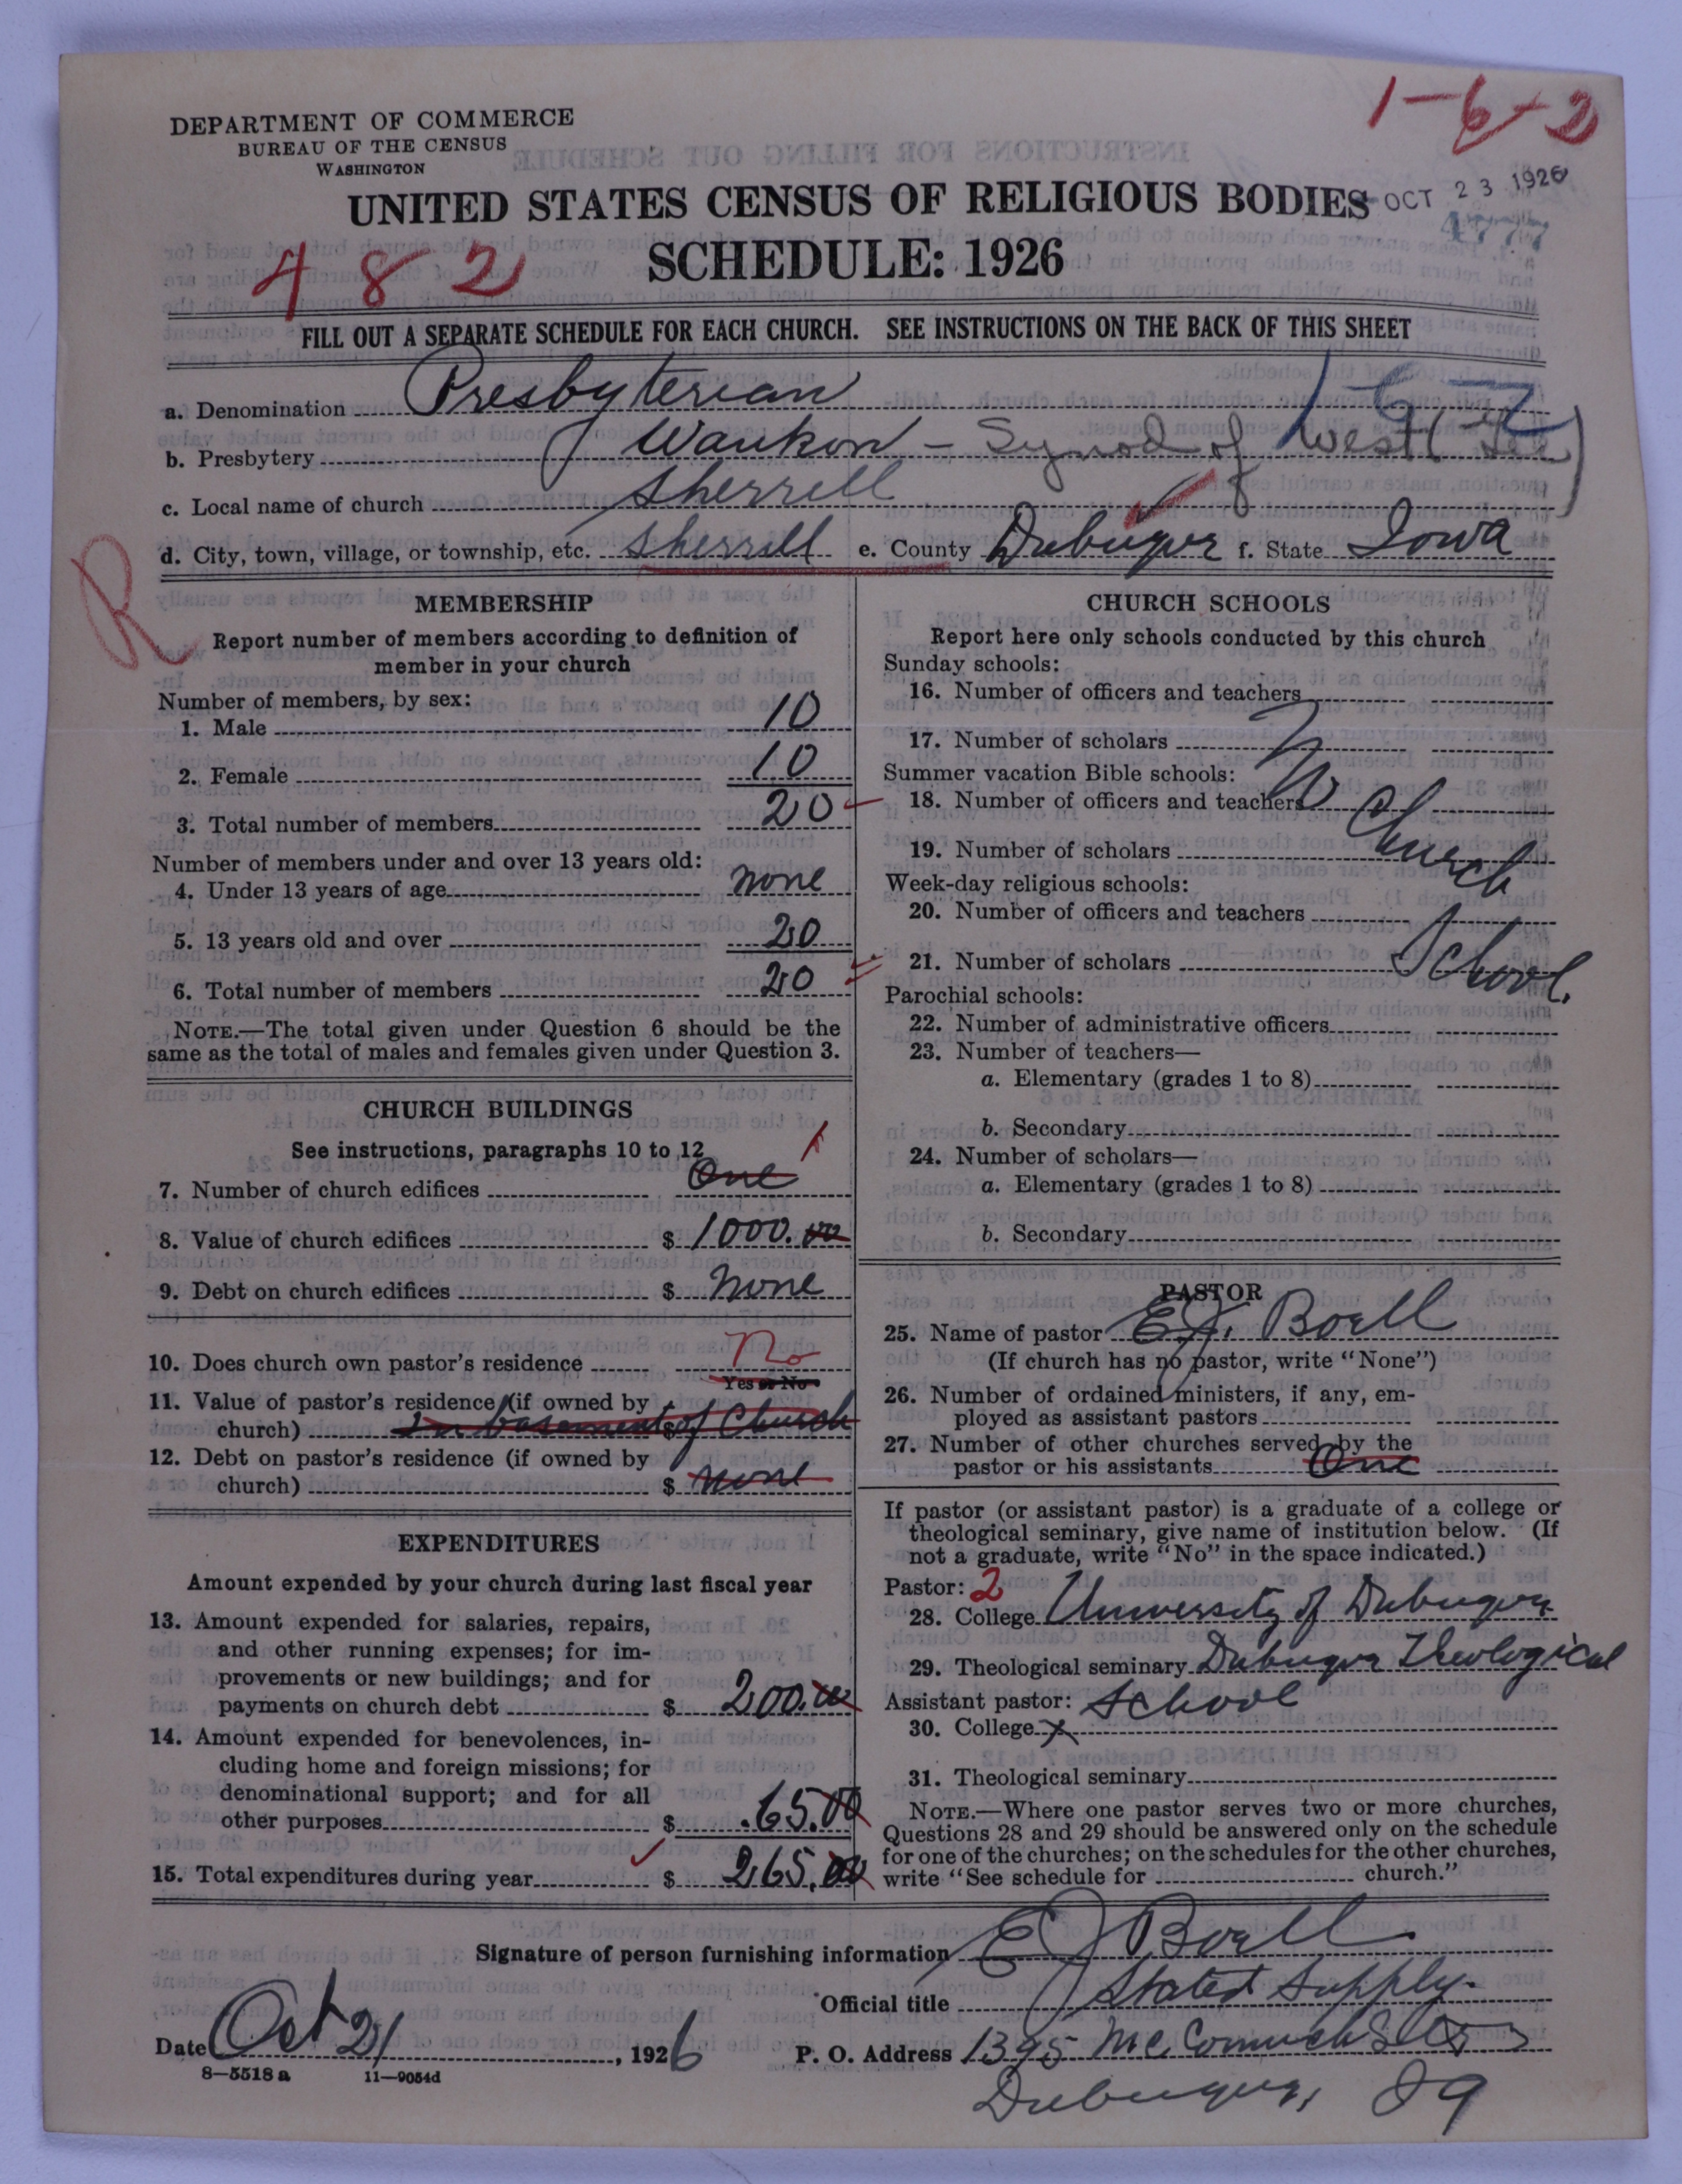 1-6-2
DEPARTMENT OF COMMERCE
BUREAU OF THE CENSUS
WASHINGTON
UNITED STATES CENSUS OF RELIGIOUS BODIES
OCT 23 1926
4777
482
SCHEDULE: 1926
FILL OUT A SEPARATE SCHEDULE FOR EACH CHURCH. SEE INSTRUCTIONS ON THE BACK OF THIS SHEET
a. Denomination Presbyterian
b. Presbytery Waukon - Synod of West
c. Local name of church Sherrill
d. City, town, village, or township, etc. Sherrill e. County Dubuque f. State Iowa
R
MEMBERSHIP
Report number of members according to definition of
member in your church
Number of members, by sex:
1. Male 10
2. Female 10
3. Total number of members 20
Number of members under and over 13 years old:
4. Under 13 years of age none
5. 13 years old and over 20
6. Total number of members 20
NOTE.—The total given under Question 6 should be the
same as the total of males and females given under Question 3.
CHURCH BUILDINGS
See instructions, paragraphs 10 to 12
7. Number of church edifices One 1
8. Value of church edifices $ 1000.00
9. Debt on church edifices $ none
10. Does church own pastor's residence No
Yes or No
11. Value of pastor's residence (if owned by
church) $ In basement of Church
12. Debt on pastor's residence (if owned by
church) $ none
EXPENDITURES
Amount expended by your church during last fiscal year
13. Amount expended for salaries, repairs,
and other running expenses; for im-
provements or new buildings; and for
payments on church debt $ 200.00
14. Amount expended for benevolences, in-
cluding home and foreign missions; for
denominational support; and for all
other purposes $ 65.00
15. Total expenditures during year $ 265.00
CHURCH SCHOOLS
Report here only schools conducted by this church
Sunday schools:
16. Number of officers and teachers
17. Number of scholars
Summer vacation Bible schools:
18. Number of officers and teachers No
19. Number of scholars Church
Week-day religious schools:
20. Number of officers and teachers
21. Number of scholars School.
Parochial schools:
22. Number of administrative officers
23. Number of teachers—
a. Elementary (grades 1 to 8)
b. Secondary
24. Number of scholars—
a. Elementary (grades 1 to 8)
b. Secondary
PASTOR
25. Name of pastor E.J. Boell
(If church has no pastor, write "None")
26. Number of ordained ministers, if any, em-
ployed as assistant pastors
27. Number of other churches served by the
pastor or his assistants One
If pastor (or assistant pastor) is a graduate of a college or
theological seminary, give name of institution below. (If
not a graduate, write "No" in the space indicated.)
Pastor: 2
28. College University of Dubuque
29. Theological seminary Dubuque Theological
Assistant pastor: School
30. College x
31. Theological seminary
NOTE.—Where one pastor serves two or more churches,
Questions 28 and 29 should be answered only on the schedule
for one of the churches; on the schedules for the other churches,
write "See schedule for church."
Signature of person furnishing information E J Boell
Official title Stated Supply.
Date Oct 21, 1926 P. O. Address 1395
8—5518a 11—9054d
Dubuque, Ia